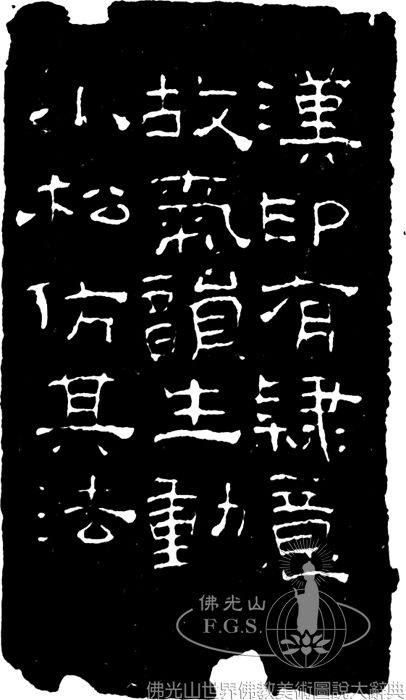 漢印有隸意
故氣韻生動
小松仿其法
佛光山
F.G.S.
佛光山世界佛教美術圖說大辭典